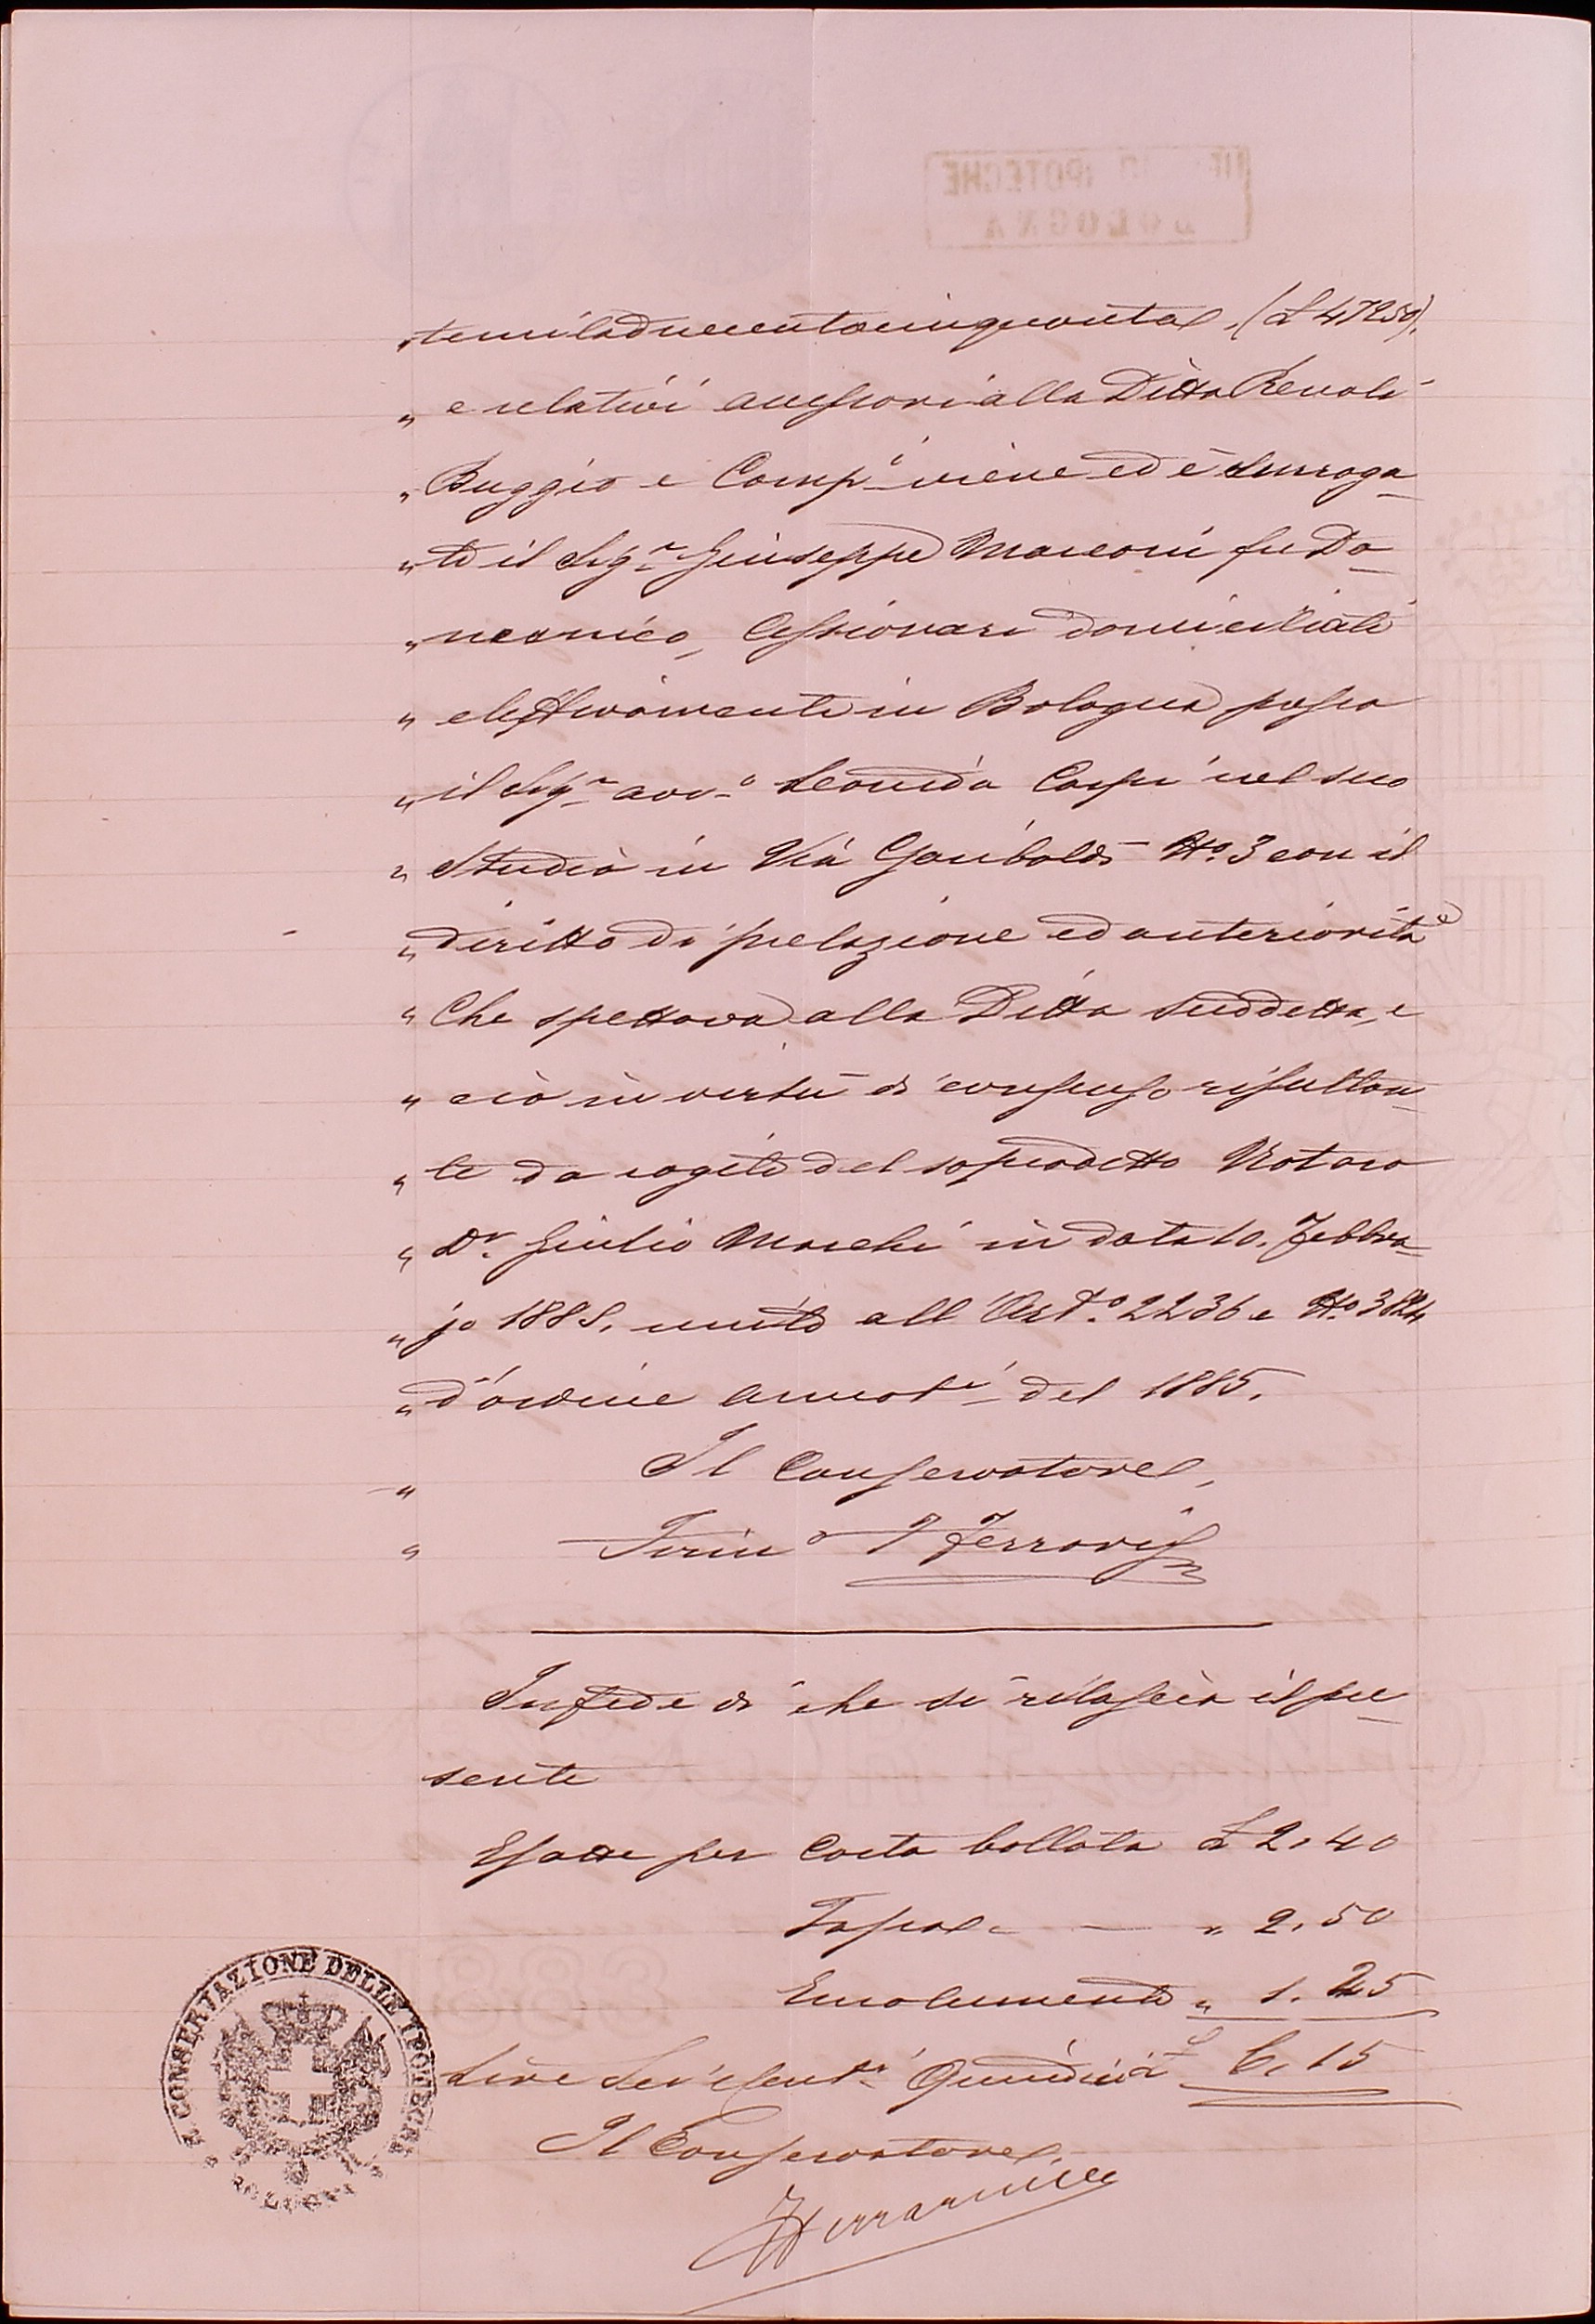 „temiladuecentocinquanta, (£ 47250),
„ e relativi accessori alla Ditta Renoli
„ Buggio e Comp.i viene ed è surroga-
„ to il Sig.r Giuseppe Marconi fu Do-
„ menico, Cessionari domiciliati
„ elettivamente in Bologna presso
„ il Sig.r avv.o Leonida Carpi nel suo
„ Studio in Via Garibaldi No. 3 con il
„ diritto di prelazione ed anteriorità
„ Che spettava alla Ditta suddetta, e
„ ciò in virtù di consenso risultan-
„ te da rogito del sopradetto Notaro
„ Dr. Giulio Marchi in data 10. Febbra-
„ jo 1885. unito all'Art.o 2236 e No. 3824
„ d'ordine annot.i del 1885.
„ Il Conservatore,
„ Firm.o Ferraris
In fede di che si rilascia il pre-
sente
Esatte per Carta bollata £ 2.40
Tassa — „ 2.50
Emolumento „ 1.25
Lire Sei e Cent.i Quindici £ 6.15
Il Conservatore
R. CONSERVAZIONE DELLE IPOTECHE
BOLOGNA